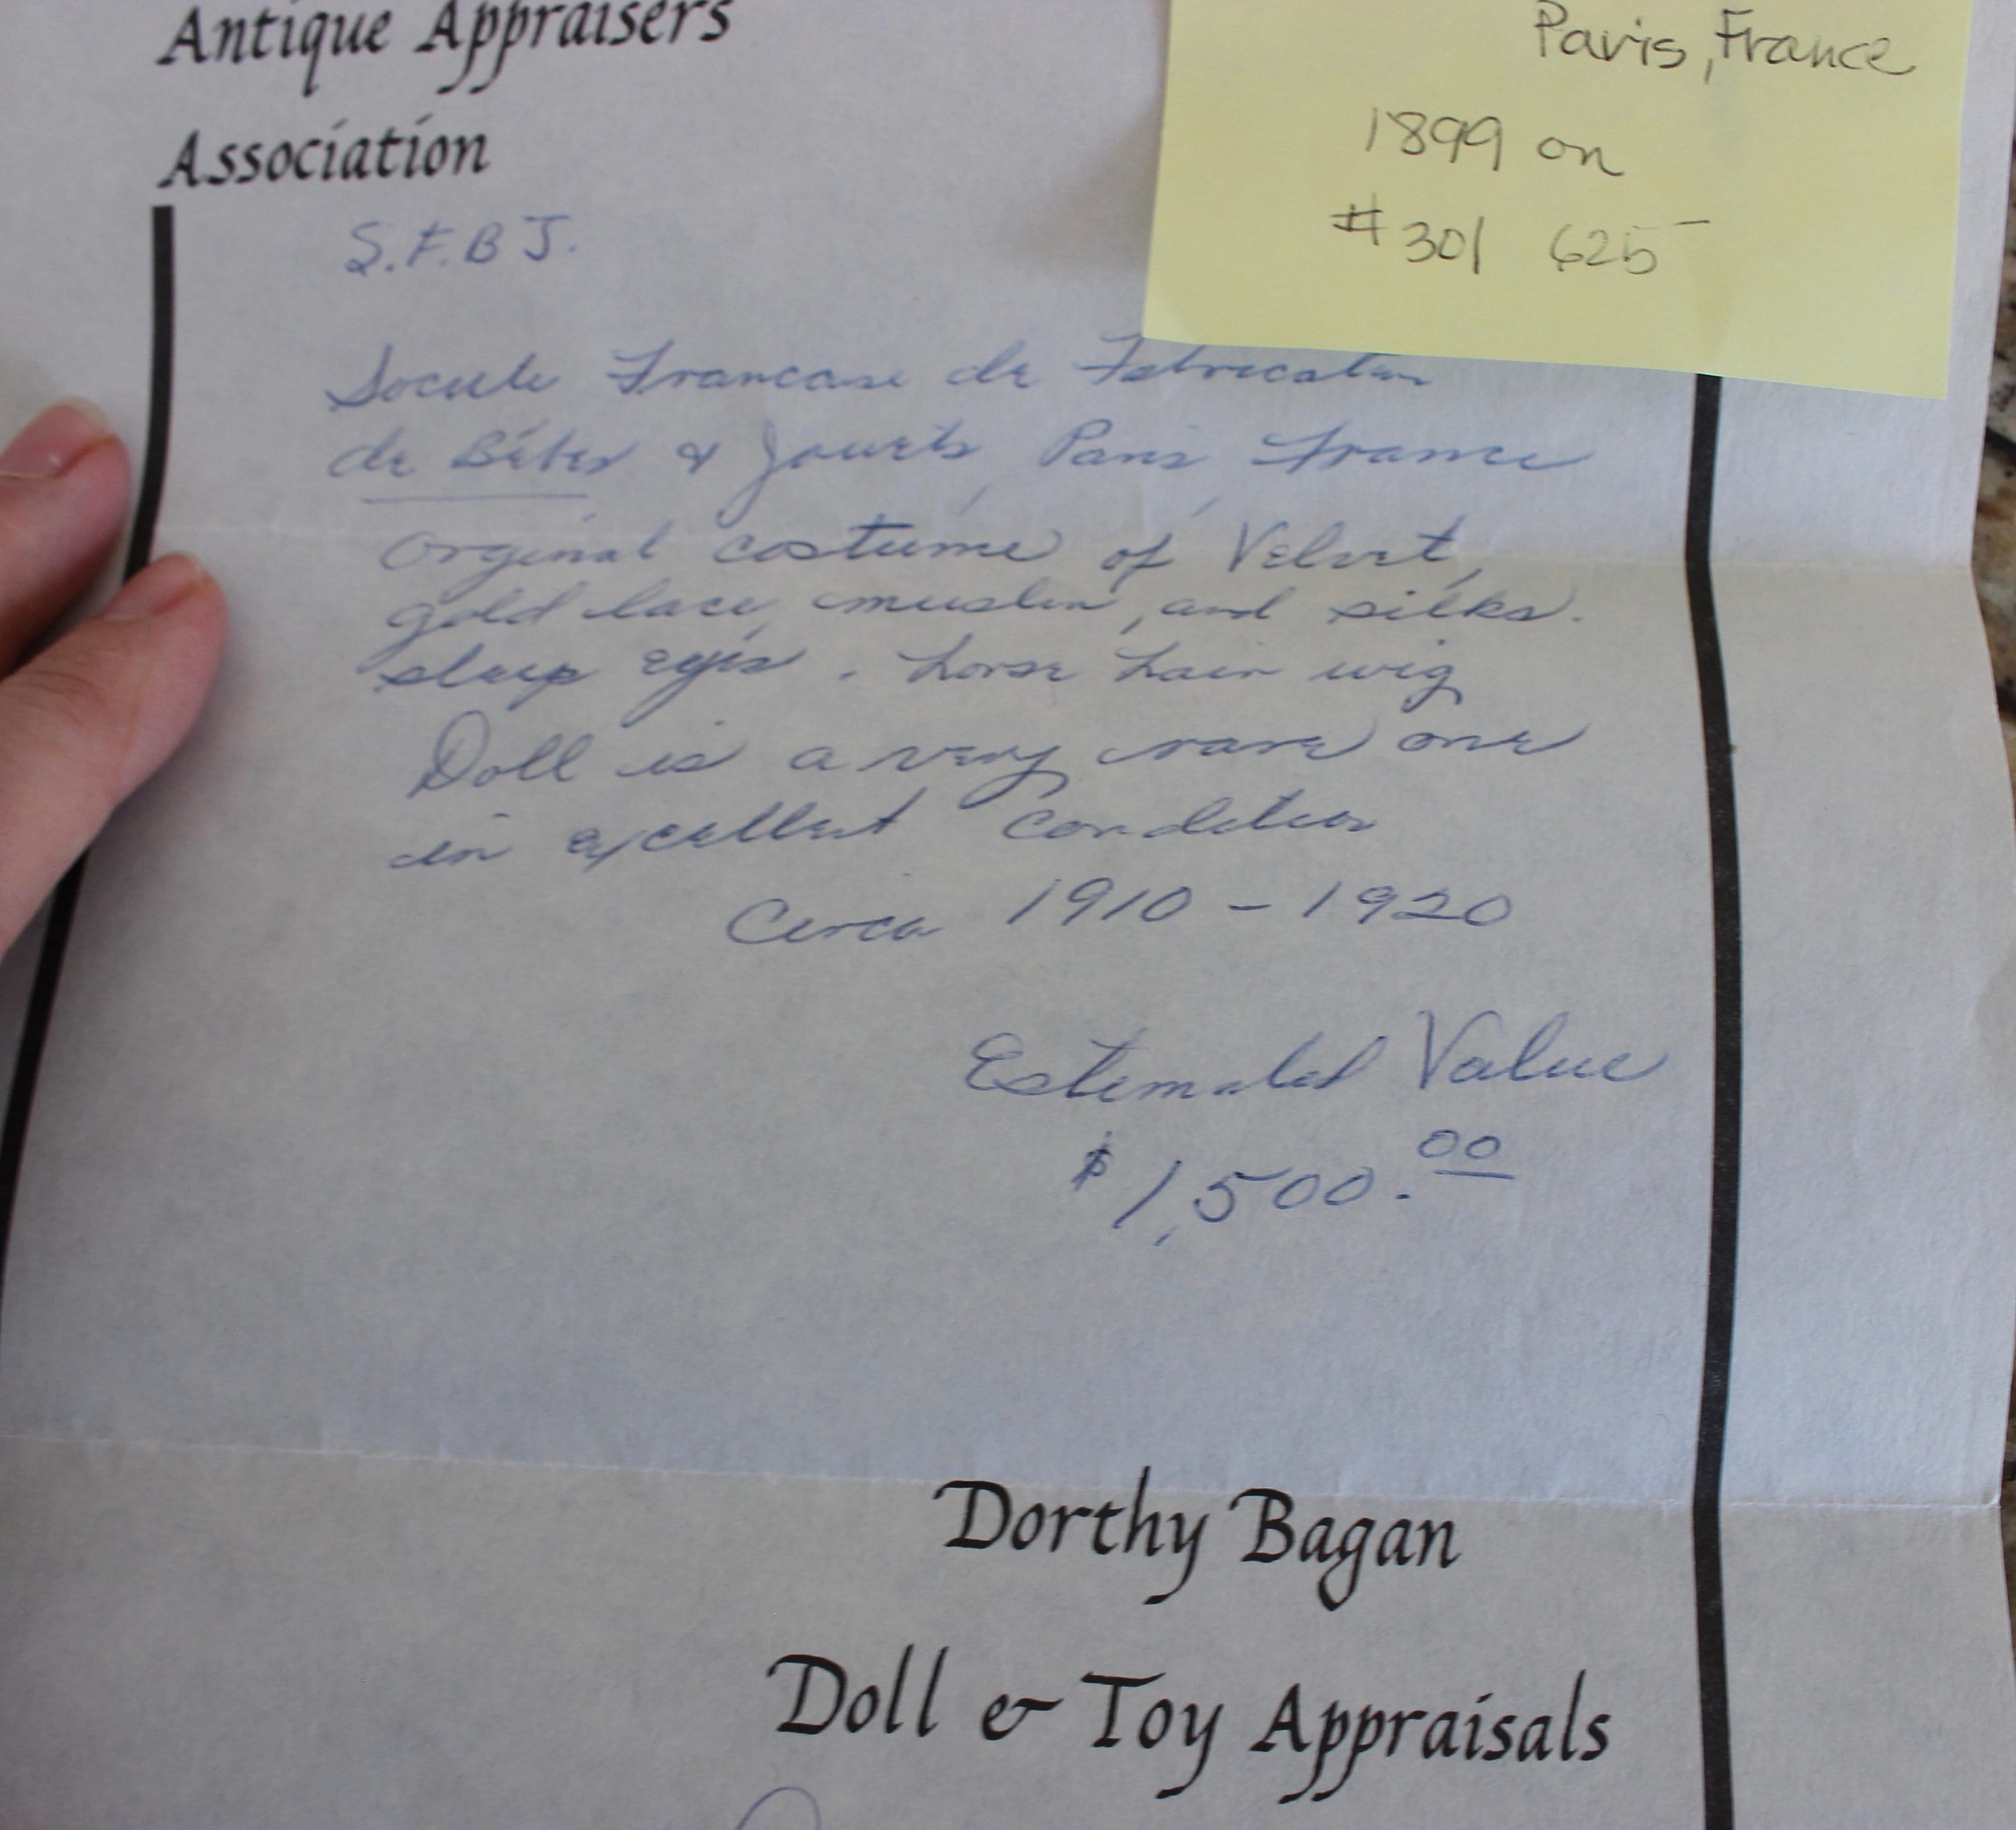 Antique Appraisers
Association
Paris, France
1899 on
#301 625-
S.F.B J.
Societe Francaise de Fabrication
de Bébes & Jouets, Paris, France
Orginal costume of Velvet,
gold lace, muslin, and silks.
sleep eyes. horse hair wig
Doll is a very rare one
in excellent condition
Circa 1910 - 1920
Estimated Value
$1,500.00
Dorthy Bagan
Doll & Toy Appraisals